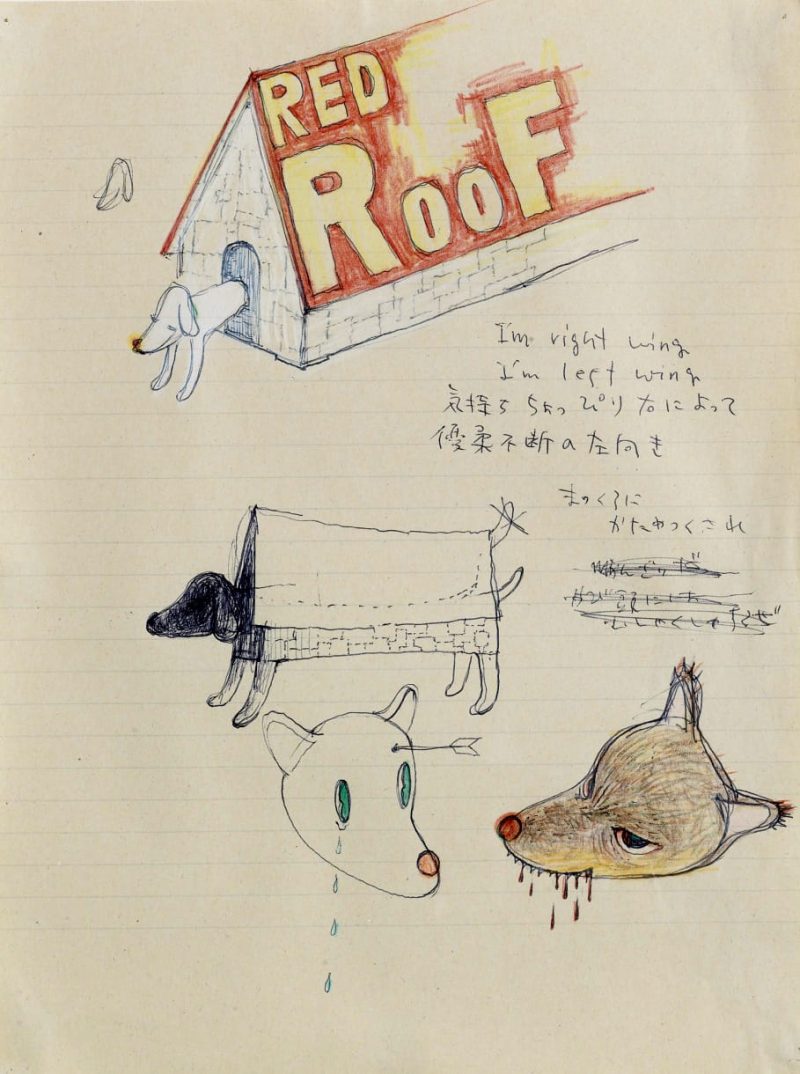 RED
ROOF
I'm right wing
I'm left wing
気持ちちょっぴり右によって
優柔不断の左向き
まっくろに